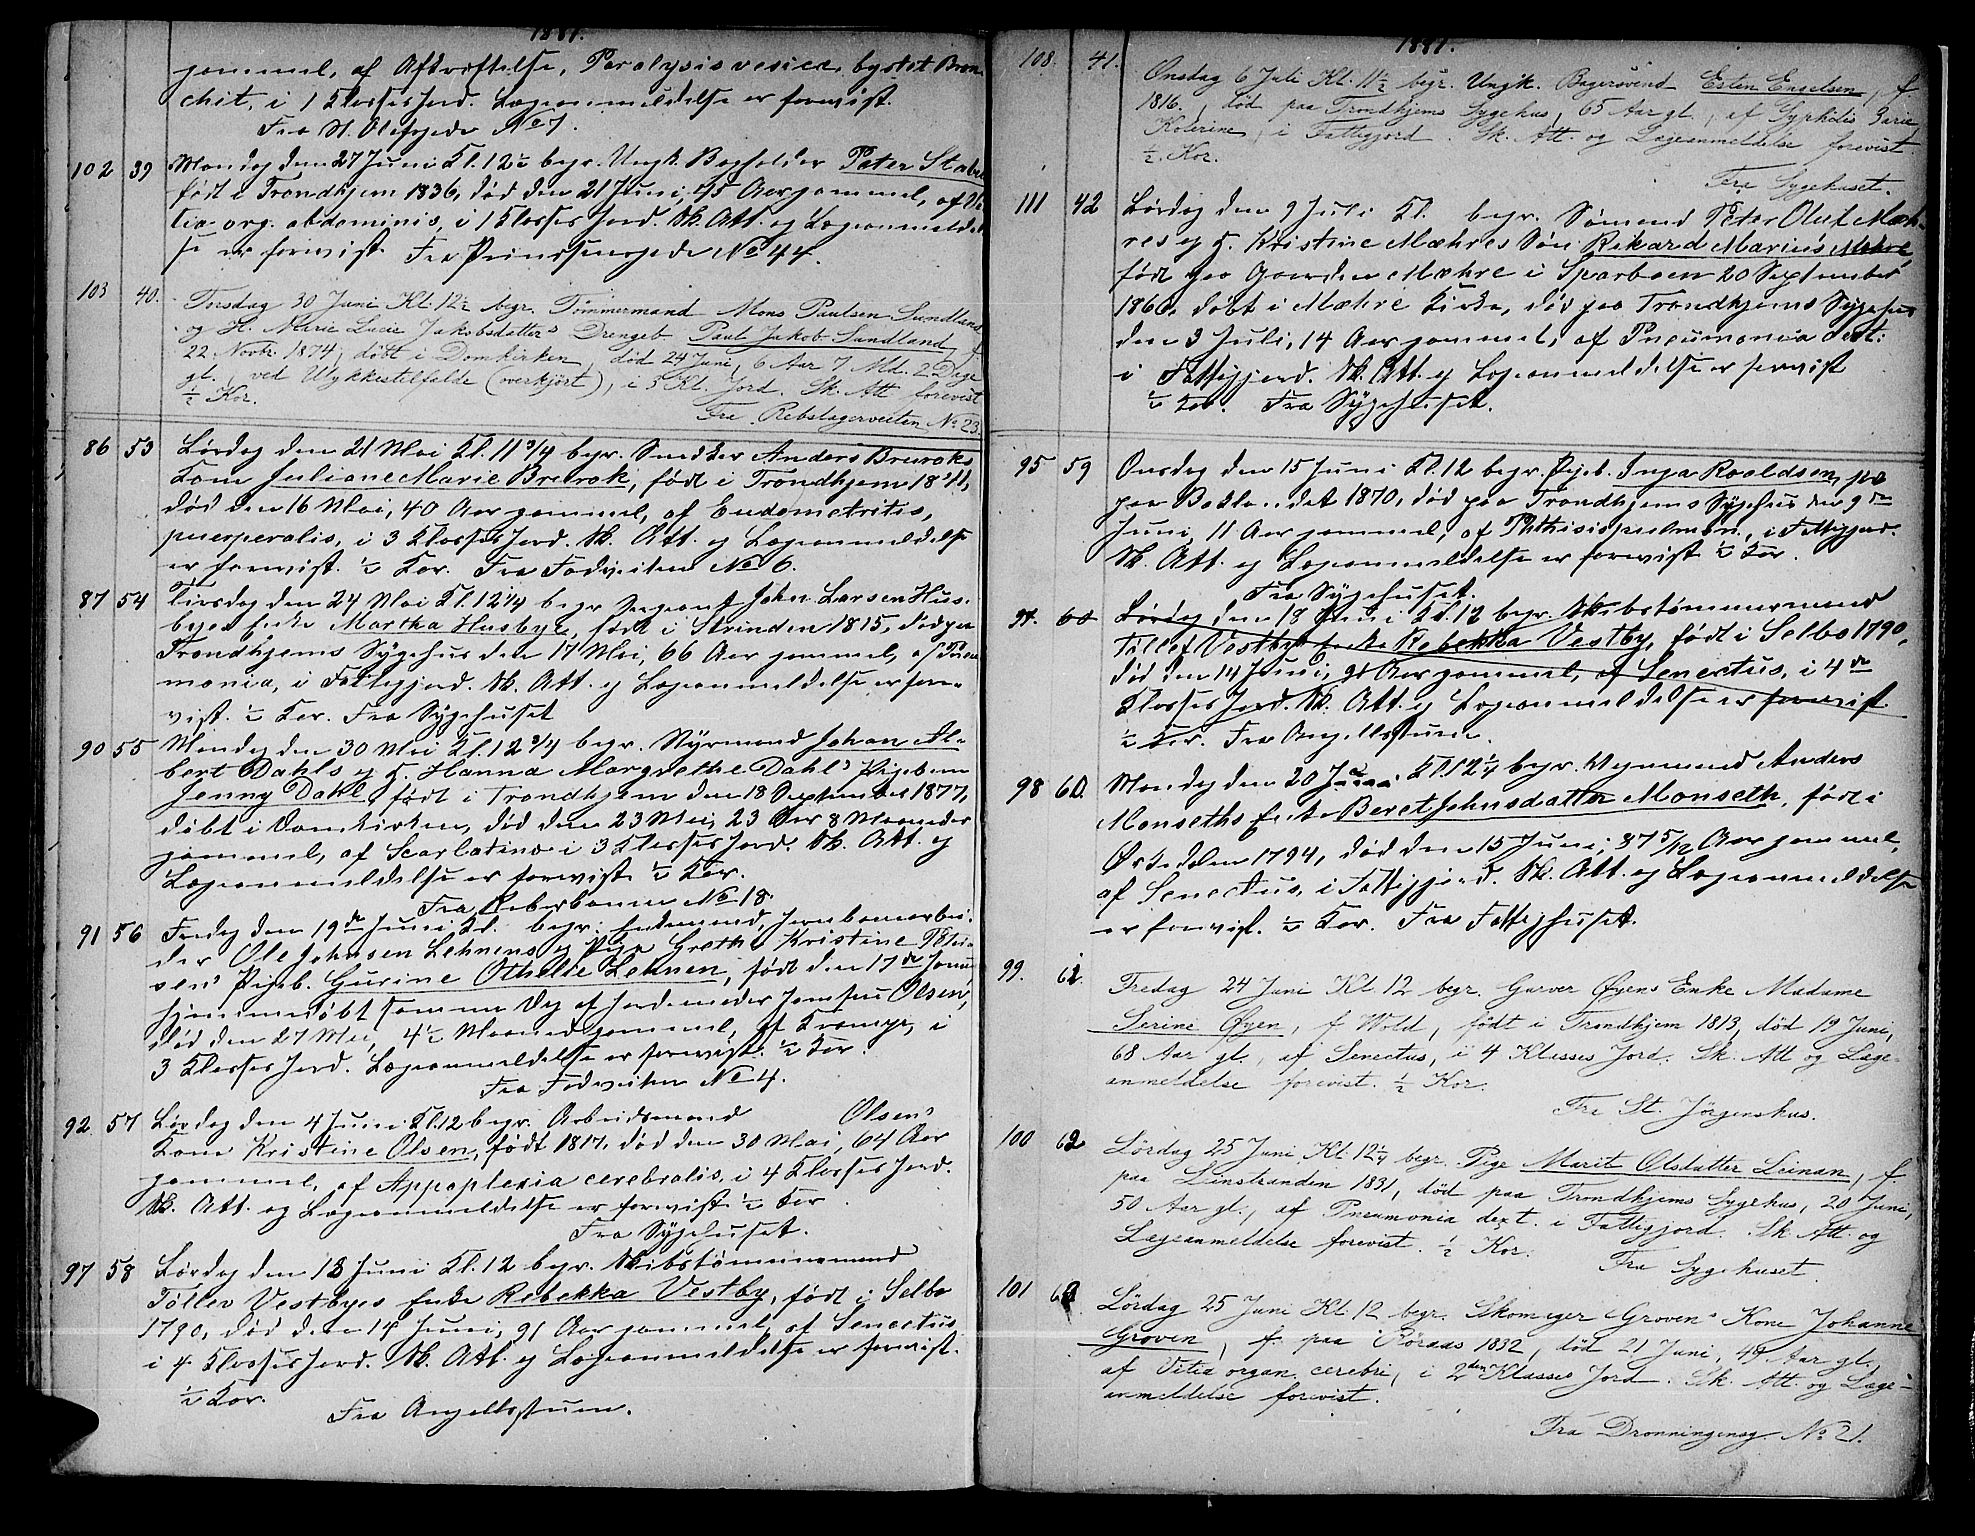 1881.
gammel, af Afkræftelse, Paralysis vesicæ, bystet Bron-
chit, i 1 Klasses Jord. Lægeanmeldelse er forevist.
Fra St. Olafsgade No 7.
102 39 Mandag den 27 Juni Kl. 12½ begr. Ungk. Bogholder Peter
født i Trondhjem 1836, død den 21 Juni, 45 Aar gammel, af Vi-
tia org. abdominis, i 1 Klasses Jord. Sk. Att. og Lægeanmeldel-
se er forevist. Fra Prindsensgade No 44.
103 40. Torsdag 30 Juni Kl. 12½ begr. Tømmermand Mons Paulsen Sundland
og H. Marie Lucie Jakobsdatters Drengeb. Paul Jakob Sundland, f.
22 Novbr. 1874, døbt i Domkirken, død 24 Juni, 6 Aar 7 Md. 2 Dage
gl., ved Ulykkestilfælde (overkjørt), i 3 Kl. Jord. Sk. Att forevist
½ Kor.
Fra Rebslagerveiten No 23.
86 53 Lørdag den 21 Mai Kl. 11¾ begr. Snedker Anders Breivaks
Kone Juliane Marie Breivok, født i Trondhjem 1841,
død den 16 Mai, 40 Aar gammel, af Endometritis,
puerperalis, i 3 Klasses Jord. Sk. Att. og Lægeanmeldelse
er forevist. ½ Kor. Fra Fodveiten No 6.
87 54 Tirsdag den 24 Mai Kl. 12¼ begr. Sergeant John Larsen Hus-
byes Enke Martha Husbye, født i Strinden 1815, død paa
Trondhjems Sygehus den 17 Mai, 66 Aar gammel, af Pneu-
monia, i Fattigjord. Sk. Att. og Lægeanmeldelse er fore-
vist. ½ Kor. Fra Sygehuset
90 55 Mandag den 30 Mai Kl. 12¾ begr. Styrmand Johan Al-
bert Dahls og H. Hanna Margrethe Dahls Pigebarn
Jenny Dahl, født i Trondhjem den 18 September 1877,
døbt i Domkirken, død den 23 Mai, 23 Aar 8 Maaneder
gammel, af Scarlatina i 3 Klasses Jord. Sk. Att. og
Lægeanmeldelse er forevist ½ Kor.
Fra No 18.
91 56 Fredag den 19de Juni Kl. begr. Enkemand, Jernbanearbei-
der Ole Johnsen Lehnens og Pige Grethe Kristine
Pigeb. Gurine Othilie Lehnen, født den 17de Janu
hjemmedøbt samme Dag af Jordemoder Jomfru Olsen,
død den 27 Mai, 4½ Maaned gammel, af Krampe, i
3 Klasses Jord. Lægeanmeldelse er forevist. ½ Kor.
Fra Fodveiten No 4.
92. 57 Lørdag den 4 Juni Kl. 12 begr. Arbeidsmand Olsens
Kone Kristine Olsen, født 1817, død den 30 Mai, 64 Aar
gammel, af Appoplexia cerebralis, i 4 Klasses Jord.
Sk. Att. og Lægeanmeldelse er forevist ½ Kor
Fra Sygehuset.
97 58 Lørdag den 18 Juni Kl. 12 begr. Skibstømmermand
Tøllev Vestbyes Enke Rebekka Vestby, født i Selbo
1790, død den 14 Juni, 91 Aar gammel, af Senectus,
i 4 Klasses Jord. Sk. Att. og Lægeanmeldelse er forevist.
½ Kor.
Fra Angellsstuen.
1881.
108. 41. Onsdag 6 Juli Kl. 11½ begr. Ungk. Bagersvend Esten Engelsen, f.
1816, død paa Trondhjems Sygehus, 65 Aar gl., af Syphilis
Kolerine, i Fattigjord. Sk. Att. og Lægeanmeldelse forevist
½ Kor.
Fra Sygehuset.
111 42 Lørdag den 9 Juli Kl. begr. Sømand Peter Oluf Mæh-
res og H. Kristine Mæhres Søn Rikard Marius Mæhre,
født paa Gaarden Mæhre i Sparboen 20 September
1866, døbt i Mæhre Kirke, død paa Trondhjems Sygehus
den 3 Juli, 14 Aar gammel, af Pneumonia dext.
i Fattigjord. Sk. Att. og Lægeanmeldelse er forevist
½ Kor. Fra Sygehuset.
95 59 Onsdag den 15 Juni Kl. 12 begr. Pigeb. Inga Roaldsen,
paa Baklandet 1870, død paa Trondhjems Sygehus den 9de
Juni, 11 Aar gammel, af Phthisis pulmon., i Fattigjord.
Sk. Att. og Lægeanmeldelse er forevist ½ Kor.
Fra Sygehuset.
97. 60 Lørdag den 18 Juni Kl. 12 begr. Skibstømmermand
Tøllef Vestbys Enke Rebekka Vestby, født i Selbo 1790,
død den 14 Juni, 91 Aar gammel, af Senectus, i 4de
Klasses Jord. Sk. Att. og Lægeanmeldelse er forevist.
½ Kor. Fra Angellsstuen.
98 60. Mandag den 20 Juni Kl. 12¼ begr. Anders
Monseths Enke Beret Johnsdatter Monseth, født i
Ørkedalen 1794, død den 15 Juni, 87 5/12 Aar gammel,
af Senectus, i Fattigjord. Sk. Att. og Lægeanmeldelse
er forevist. ½ Kor. Fra Fattighuset.
99. 61. Fredag 24 Juni Kl. 12 begr. Garver Øyens Enke Madame
Serine Øyen, f. Wold, født i Trondhjem 1813, død 19 Juni,
68 Aar gl., af Senectus, i 4 Klasses Jord. Sk. Att og Læge-
anmeldelse forevist. ½ Kor.
Fra St. Jørgenshus.
100 62 Lördag 25 Juni Kl. 12¼ begr. Pige Marit Olsdatter Leinan, f.
paa Leinstranden 1831, död paa Trondhjems Sygehus, 20 Juni,
50 Aar gl., af Pneumonia dext. i Fattigjord. Sk. Att. og
Lægeanmeldelse forevist. ½ Kor.
Fra Sygehuset.
101 63. Lördag 25 Juni Kl. 12 begr. Skomager Grovens Kone Johanne
Groven, f. paa Röraas 1832, död 21 Juni, 49 Aar gl.,
af Vitia organ. cerebri, i 2den Klasses Jord. Sk. Att. og Læge-
anmeldelse forevist.
Fra Dronningensg. No 21.